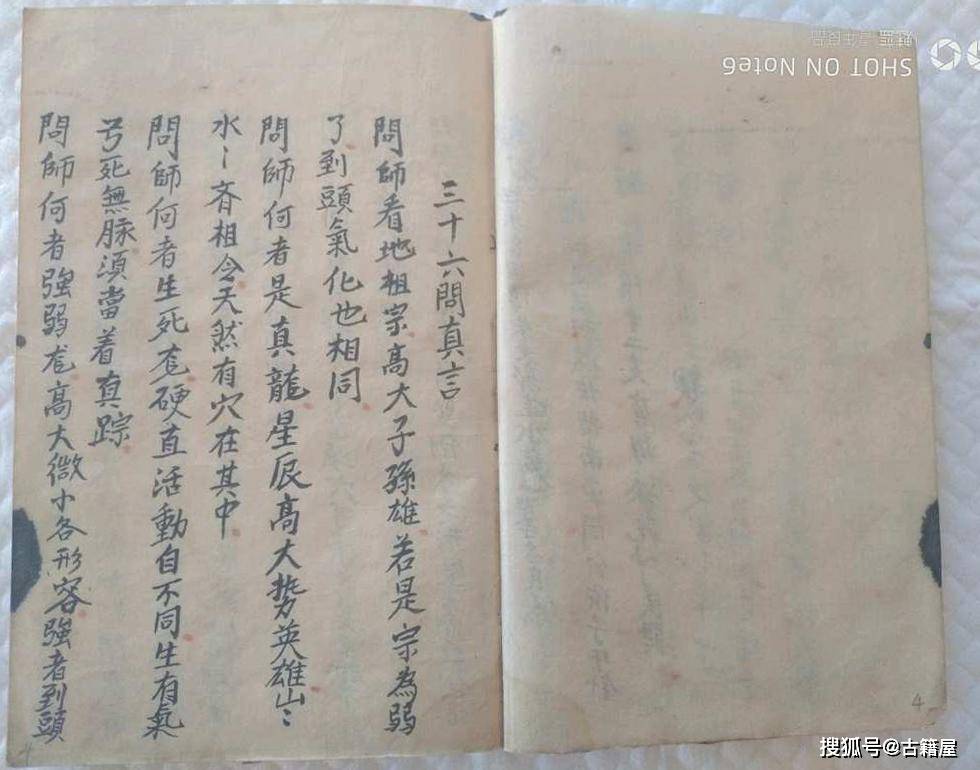 三十六問真言
問師看地祖宗高大子孫雄若是宗為弱
了到頭氣化也相同
問師何者是真龍星辰高大势英雄山〻
水〻齐相令天然有穴在其中
問師何者生死龙硬直活動自不同生有氣
兮死無脉須當着真踪
問師何者強弱龙高大微小各形容強者到頭
SHOT ON Note6
4
搜狐号@古籍屋